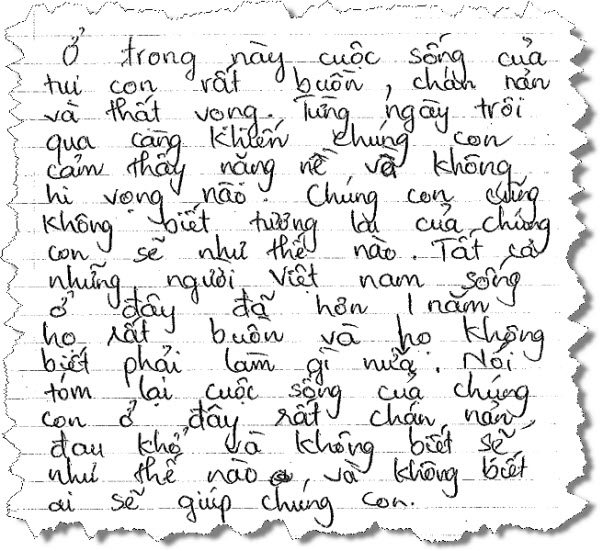 Ở trong này cuộc sống của
tui con rất buồn, chán nản
và thất vọng. Từng ngày trôi
qua càng khiến chúng con
cảm thấy nặng nề và không
hi vọng nào. Chúng con cũng
không biết tương lai của chúng
con sẽ như thế nào. Tất cả
những người Việt nam sống
ở đây đã hơn 1 năm
họ rất buồn và họ không
biết phải làm gì nữa. Nói
tóm lại cuộc sống của chúng
con ở đây rất chán nản,
đau khổ và không biết sẽ
như thế nào, và không biết
ai sẽ giúp chúng con.